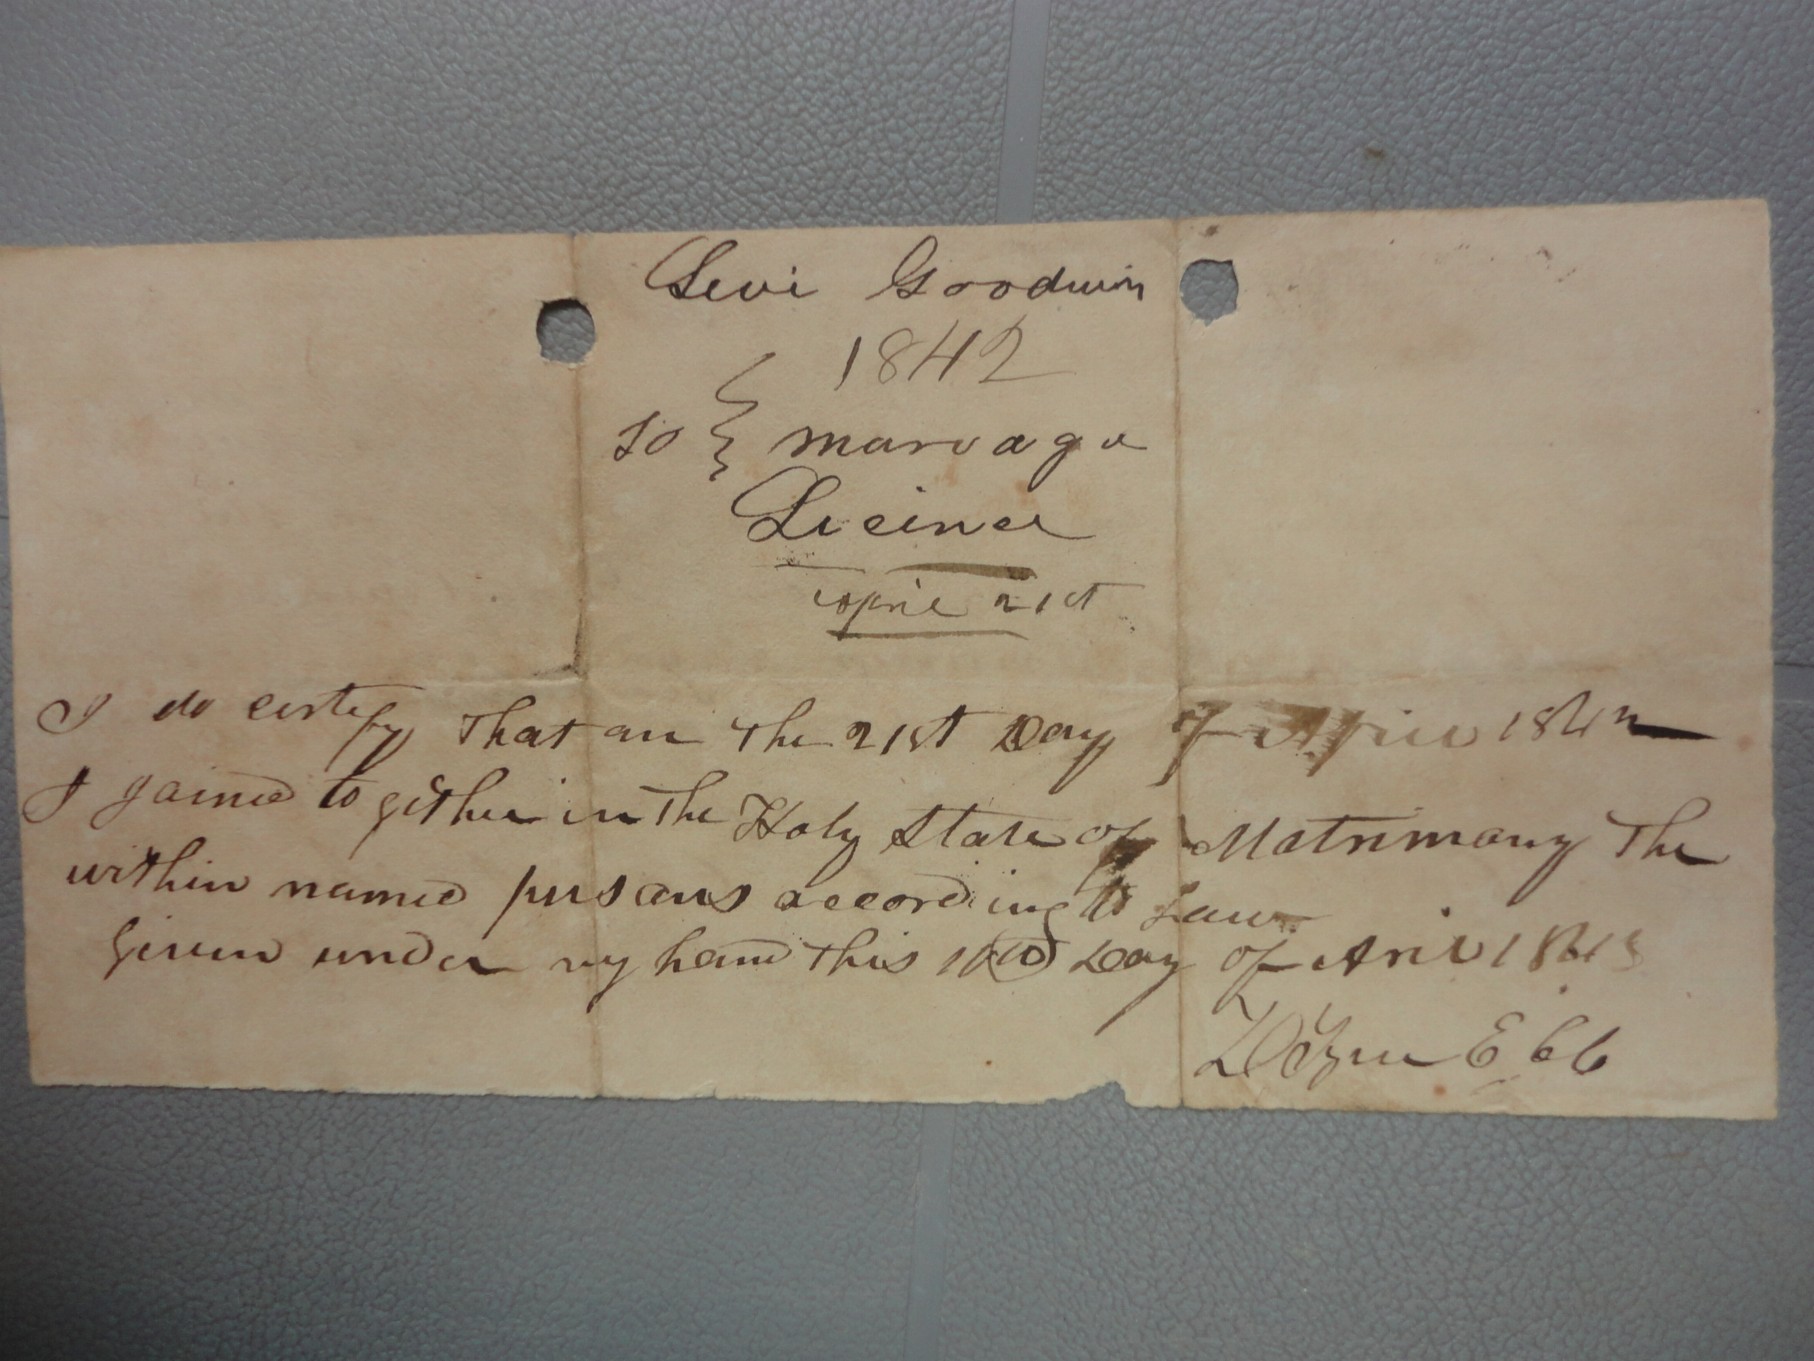 Levi Goodwin
1842
To } marvage
Lieince
april 21st
I do certify that on the 21st Day of April 1842
I joined to gether in the Holy State of Matrimony The
within named persons according to Law
given under my hand this Day of Aril 184
Ebb